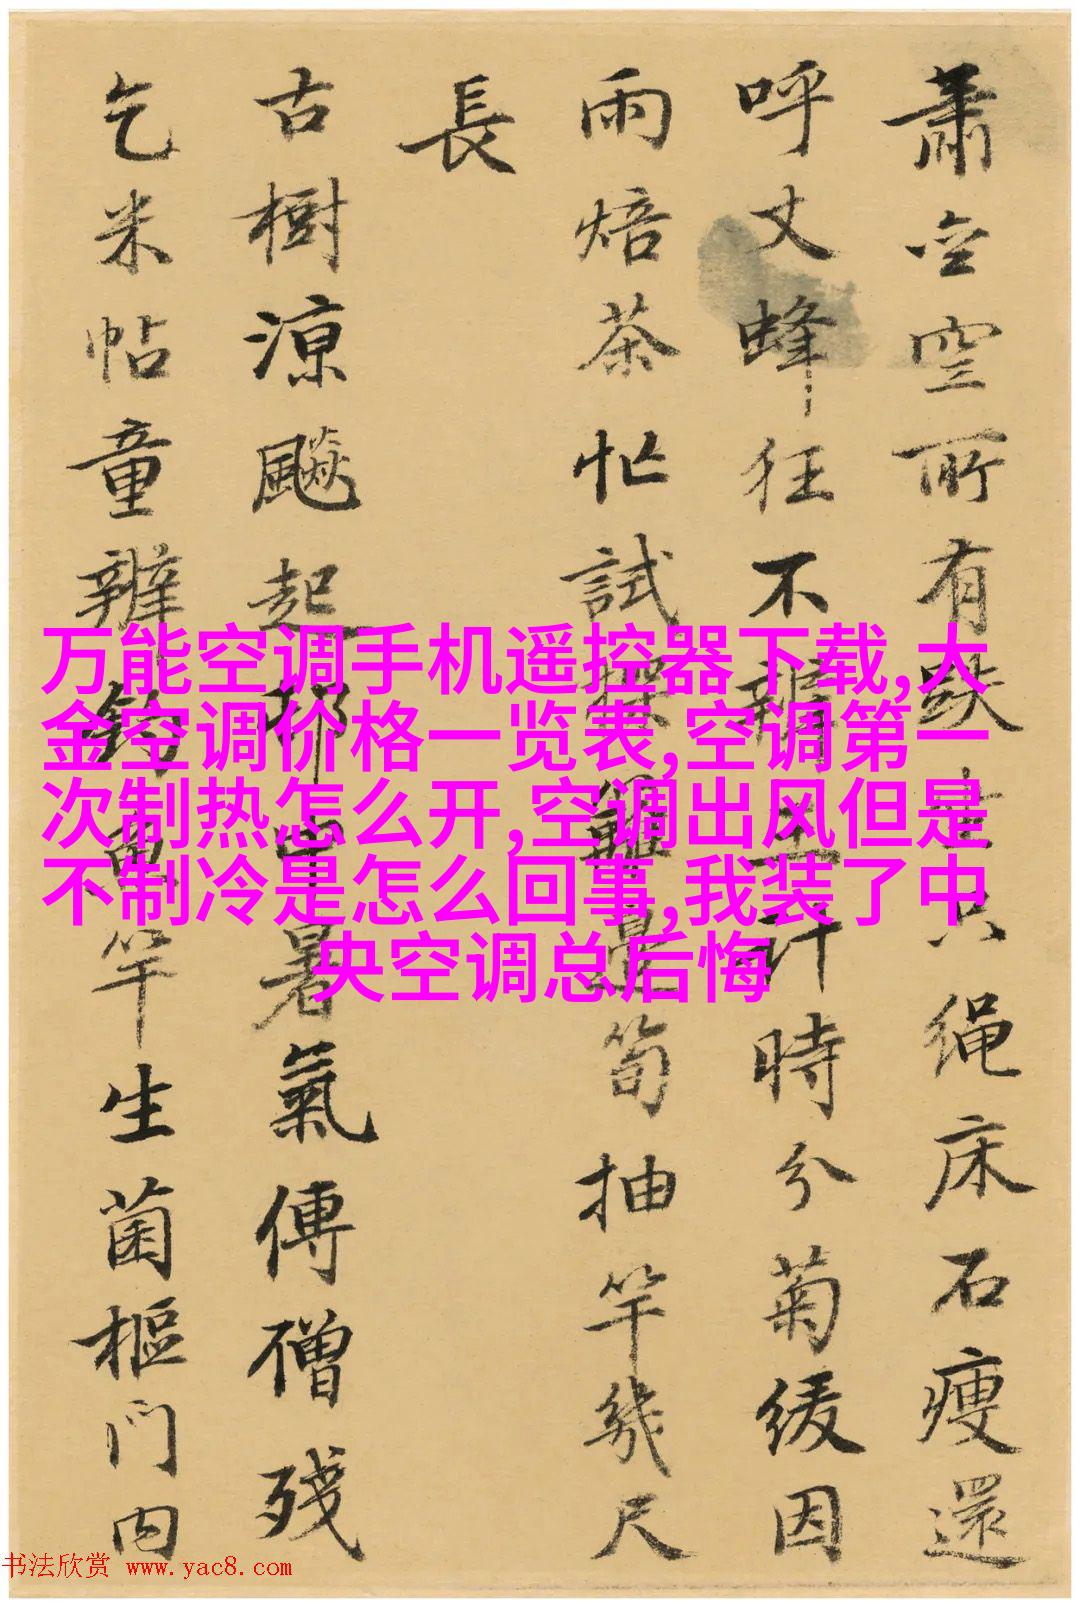 肅空空所有趺坐只绳床石瘦還
呼丈蜂狂不辨計時分菊緩因
雨焙茶忙試邊筍抽竿幾尺
長
古樹涼飈起中暑氣傅僧殘
乞米帖童辨釣魚竿生菌樞門内
万能空调手机遥控器下载,大
金空调价格一览表,空调第一
次制热怎么开,空调出风但是
不制冷是怎么回事,我装了中
央空调总后悔
书法欣赏 www.yac8.com